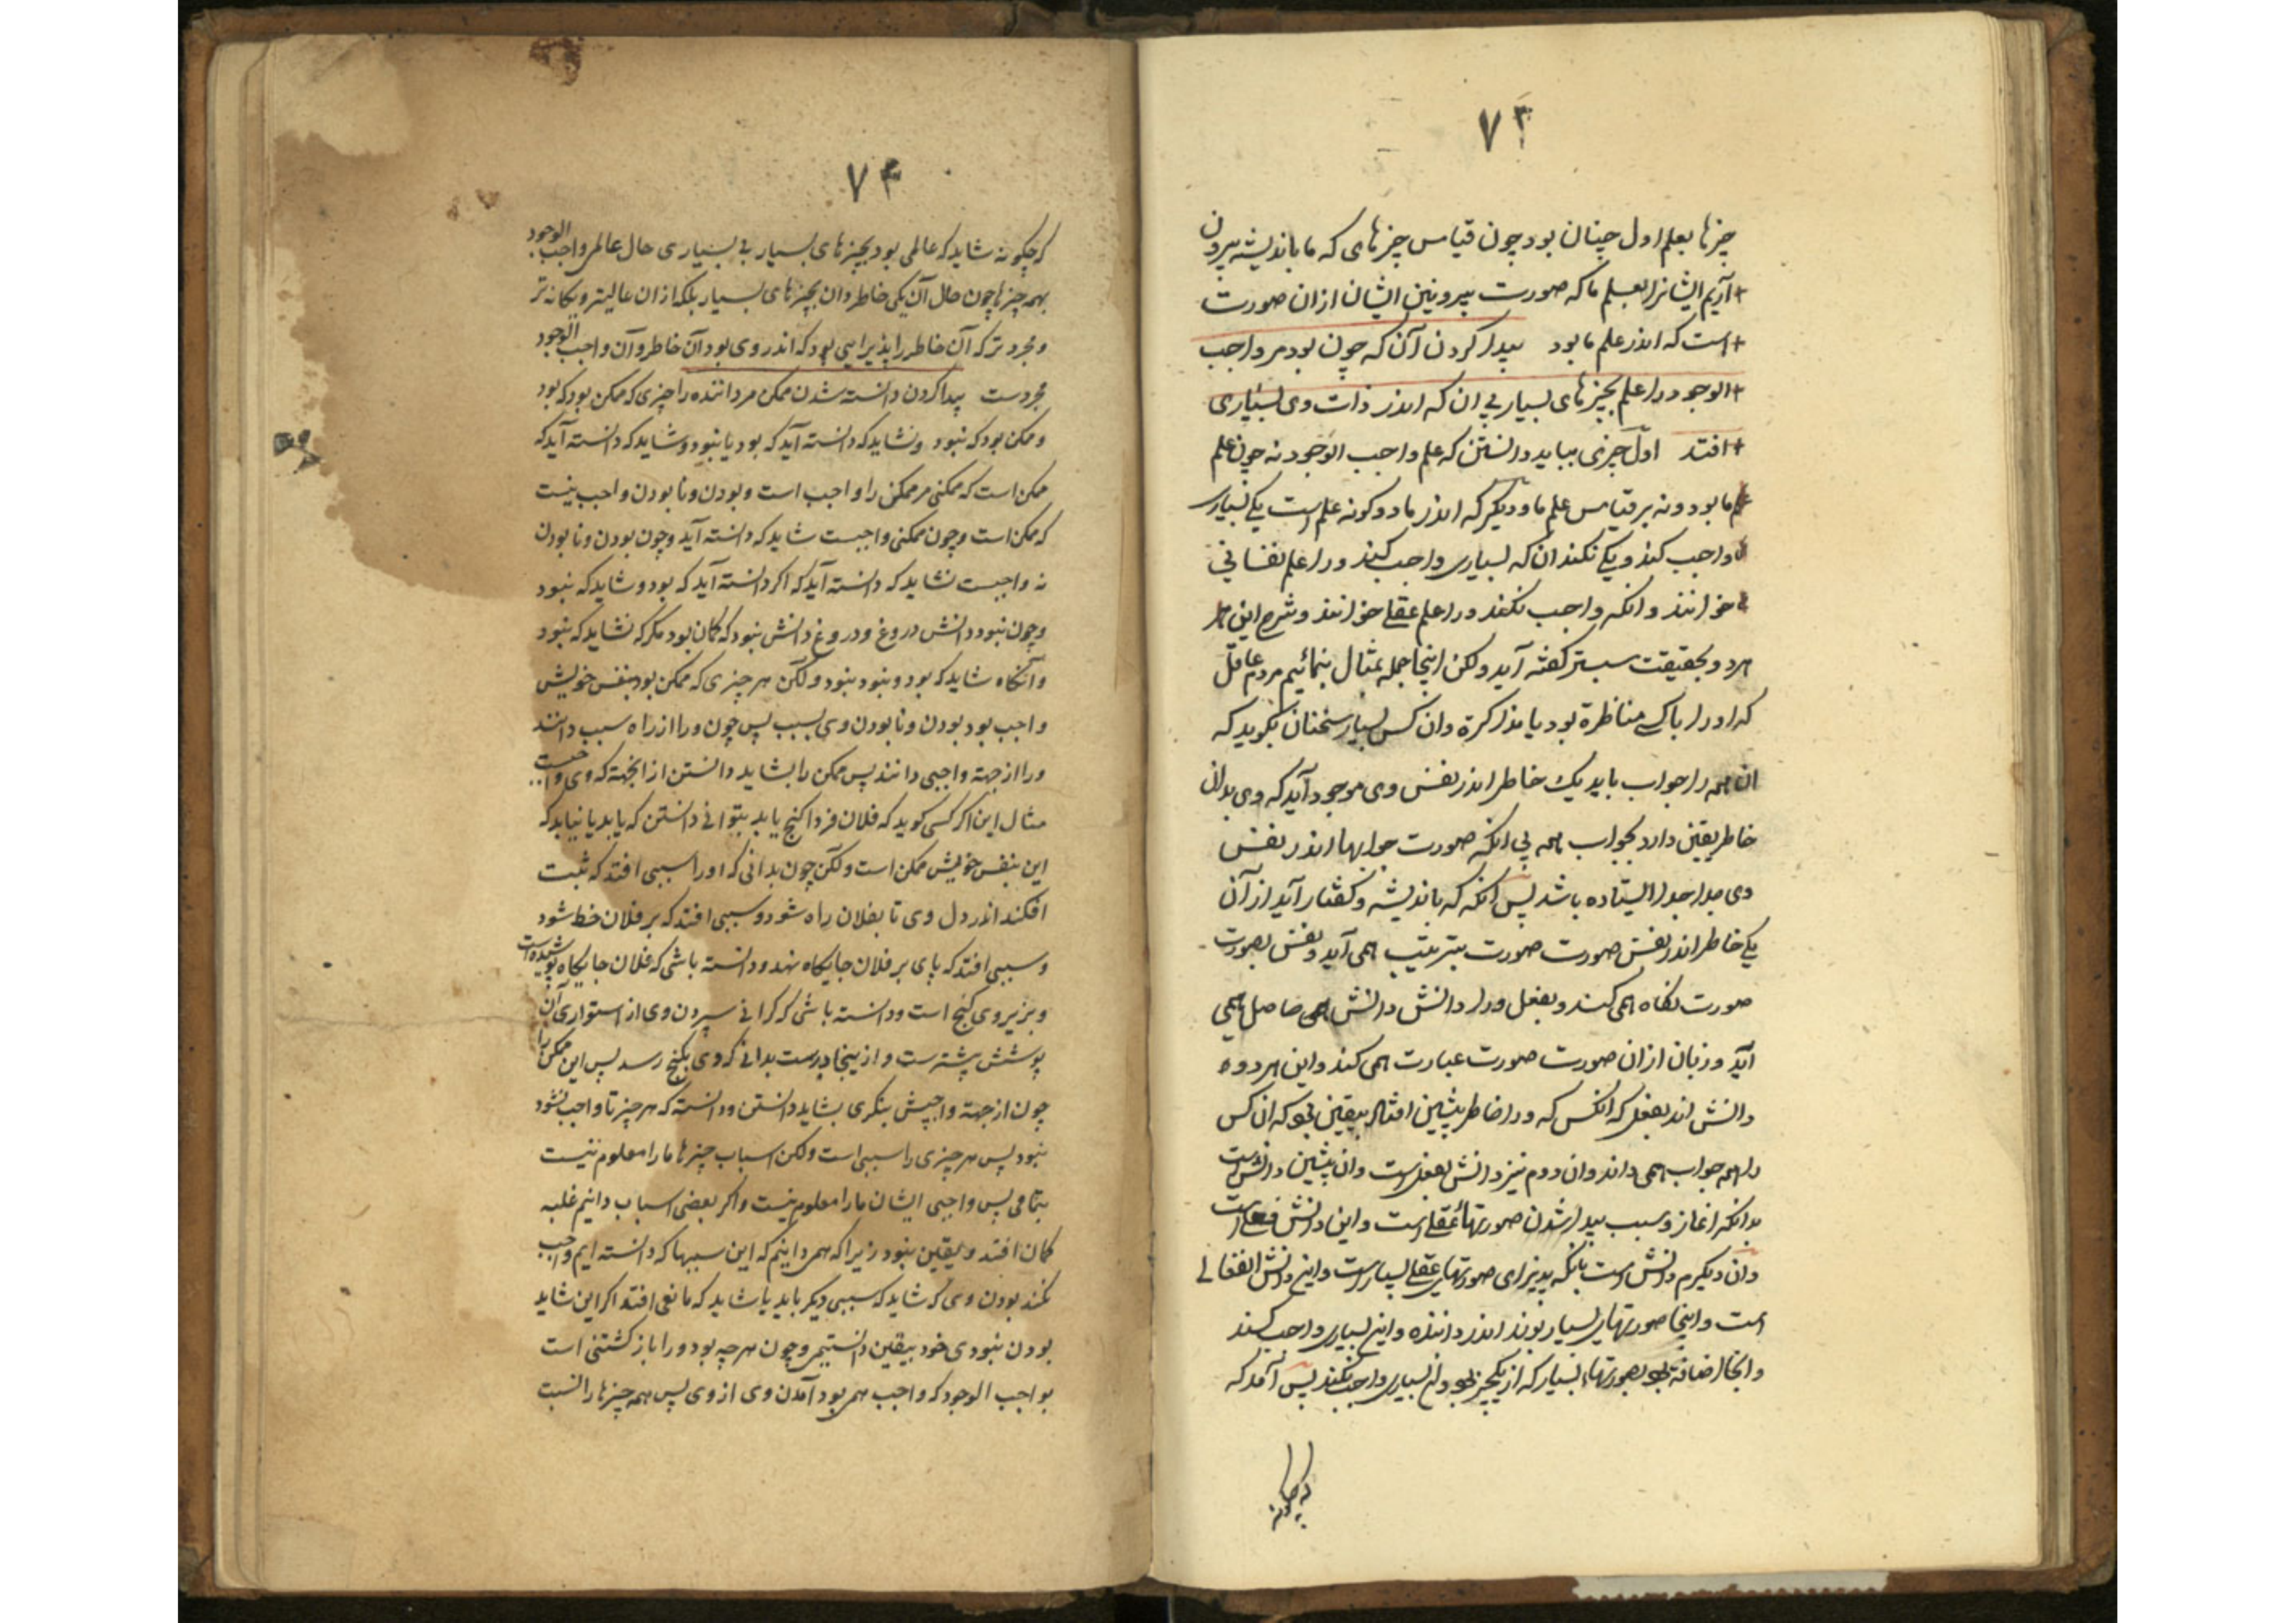 ۷۳
چیزها بعلم اول چنان بود چون قیاس چیزهای که ما باندیشه بیرون
آریم ایشانرا بعلم ما که صورت بیرونین ایشان ازان صورت
است که اندر علم ما بود پیدا کردن آن که چون بود مر واجب
الوجود را علم بچیزهای بسیار بی ان که اندر ذات وی بسیاری
افتد اول چیزی بباید دانستن که علم واجب الوجود نه چون علم
ما بود و نه بر قیاس علم ما و دیگر که اندر ما دو کونه علم است یکی بسیاری
واجب کند و یکی نکند ان که بسیاری واجب کند ورا علم نفسانی
خوانند و انکه واجب نکند ورا علم عقلی خوانند و شرح این
هر دو بحقیقت سپستر کفته آید ولکن اینجا جمله بمثال بنمائیم مردم عاقل
که او را با کسی مناظرة بود یا مذاکرة وان کس بسیار سخنان بکوید که
ان همه را جواب باید یک خاطر اندر نفس وی موجود آید که وی بدان
خاطر یقین دارد بجواب همه بی انکه صورت جوابها اندر نفس
وی جدا جدا ایستاده باشد پس انکه که باندیشه و کفتار آید از آن
یکی خاطر اندر نفس صورت صورت بترتیب همی آید و نفس بصورت
صورت نکاه همی کند و بفعل ورا دانش دانش همی حاصل همی
آید و زبان ازان صورت صورت عبارت همی کند و این هر دوه
دانش اند بفعل که انکس که ورا خاطر پیشین افتاد بیقین بود که ان کس
را همه جواب همی داند وان دوم نیز دانش بفعل است وان پیشین دانش است
بدانکه اغاز و سبب پیدا شدن صورتهای عقلی است و این دانش فعلی است
وان دیکرم دانش است بانکه پذیرای صورتهای عقلی بسیار است و این دانش انفعالی
است و اینجا صورتهای بسیار بوند اندر داننده و این بسیاری واجب کند
وانجا اضافة بود بصورتهاء بسیار که از یکچیز بود وان بسیاری واجب نکند پس آمد که
که چکونه
۷۴
که چکونه شاید که عالمی بود بچیزهای بسیار بی بسیاری حال عالمی واجب الوجود
بهمه چیزها چون حال آن یکی خاطر دان بچیزهای بسیار بلکه ازان عالیتر و یکانه تر
و مجرد تر که آن خاطر را پذیرایی بود که اندر وی بود آن خاطر و آن واجب الوجود
مجردست پیدا کردن دانسته شدن ممکن مر داننده را چیزی که ممکن بود که بود
و ممکن بود که نبود و نشاید که دانسته آید که بود یا نبود و شاید که دانسته آید که
ممکن است که ممکنی مر ممکن را واجب است و بودن و نا بودن واجب نیست
که ممکن است و چون ممکنی واجبست شاید که دانسته آید و چون بودن و نا بودن
نه واجبست نشاید که دانسته آید که اکر دانسته آید که بود و شاید که نبود
و چون نبود دانش دروغ و دروغ دانش نبود که کمان بود مکر که نشاید که نبود
و آنکاه شاید که بود و نبود نبود ولکن هر چیزی که ممکن بود بنفس خویش
واجب بود بودن و نا بودن وی بسبب پس چون ورا از راه سبب دانند
ورا از جهة واجبی دانند پس ممکن را بشاید دانستن از انجهة که وی واجبست
مثال این اکر کسی کوید که فلان فردا کنج یابد بتوانی دانستن که یابد یا نیابد که
این بنفس خویش ممکن است ولکن چون بدانی که او را سببی افتد که نیت
افکند اندر دل وی تا بفلان راه شود و سببی افتد که بر فلان خط شود
و سببی افتد که پای بر فلان جایکاه نهد و دانسته باشی که فلان جایکاه پوشیده است
و بزیر وی کنج است و دانسته باشی که کرانی سپردن وی از استواری آن
پوشش بیشترست و از ینجا درست بدانی که وی بکنج رسد پس این ممکن را
چون از جهة واجبیش بنکری بشاید دانستن و دانسته که هر چیز تا واجب نشود
نبود پس هر چیزی را سببی است ولکن اسباب چیزها ما را معلوم نیست
بتمامی پس واجبی ایشان ما را معلوم نیست و اکر بعضی اسباب دانیم غلبه
کمان افتد و یقین نبود زیرا که همی دانیم که این سببها که دانسته ایم واجب
نکند بودن وی که شاید که سببی دیکر باید یا شاید که مانعی افتد اکر این شاید
بودن نبودی خود بیقین دانستیمی و چون هر چه بود ورا باز کشتنی است
بواجب الوجود که واجب همی بود آمدن وی از وی پس همه چیزها را نسبت